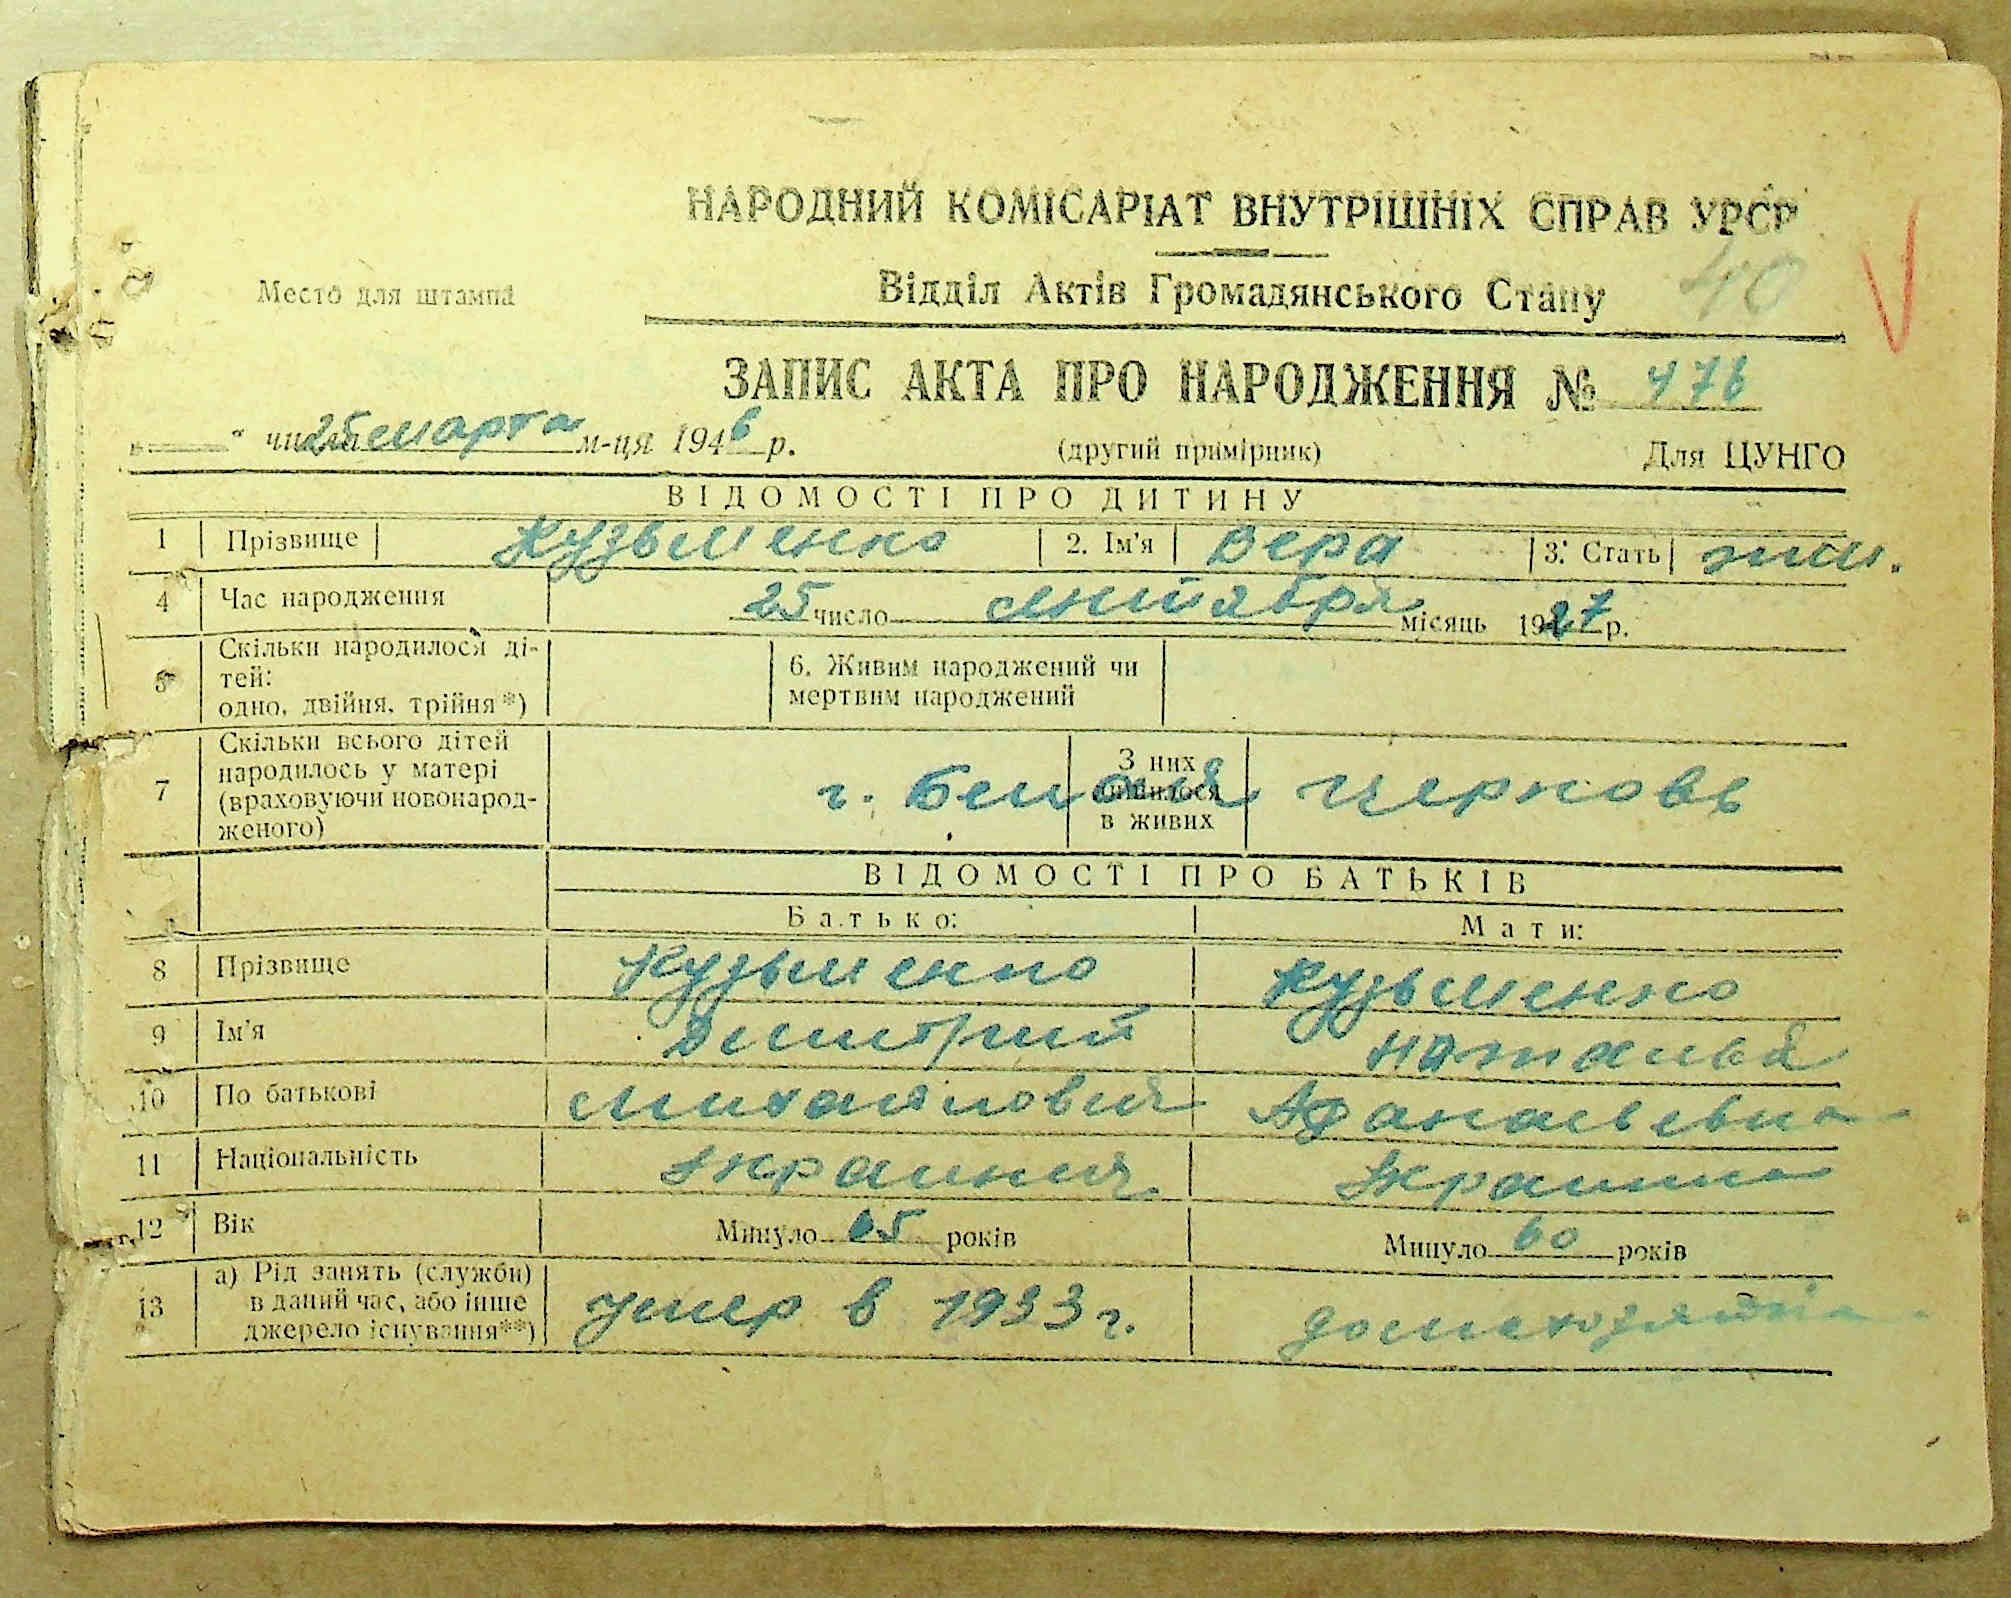 НАРОДНИЙ КОМІСАРІАТ ВНУТРІШНІХ СПРАВ УРСР
Место для штампа
Відділ Актів Громадянського Стану 40
ЗАПИС АКТА ПРО НАРОДЖЕННЯ № 476
25 марта м-ця 1946 р. (другий примірник) Для ЦУНГО
ВІДОМОСТІ ПРО ДИТИНУ
1 Прізвище Кузьменко 2. Ім'я Вера 3. Стать жен.
4 Час народження 25 число сентября місяць 1927 р.
5 Скільки народилося ді-
тей:
одно, двійня, трійня*)
6. Живим народжений чи
мертвим народжений
7 Скільки всього дітей
народилось у матері
(враховуючи новонарод-
женого)
З них
лишилося
в живих
г. Белая Церковь
ВІДОМОСТІ ПРО БАТЬКІВ
Батько: Мати:
8 Прізвище Кузьменко Кузьменко
9 Ім'я Дмитрий Наталья
10 По батькові Михайлович Афанасьевна
11 Національність Украинец Украинка
12 Вік Минуло 65 років Минуло 60 років
13 а) Рід занять (служби)
в даний час, або інше
джерело існування**)
умер в 1933 г. домохозяйка